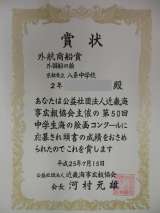 賞状
外航商船賞
外国船の絵
京都市立 八条中学校
2年 殿
あなたは公益社団法人近畿海
事広報協会主催の第50回
中学生海の絵画コンクールに
応募され頭書の成績をおさめ
られたのでこれを賞します
平成25年7月15日
公益社団法人近畿海事広報協会
会長 河村元雄